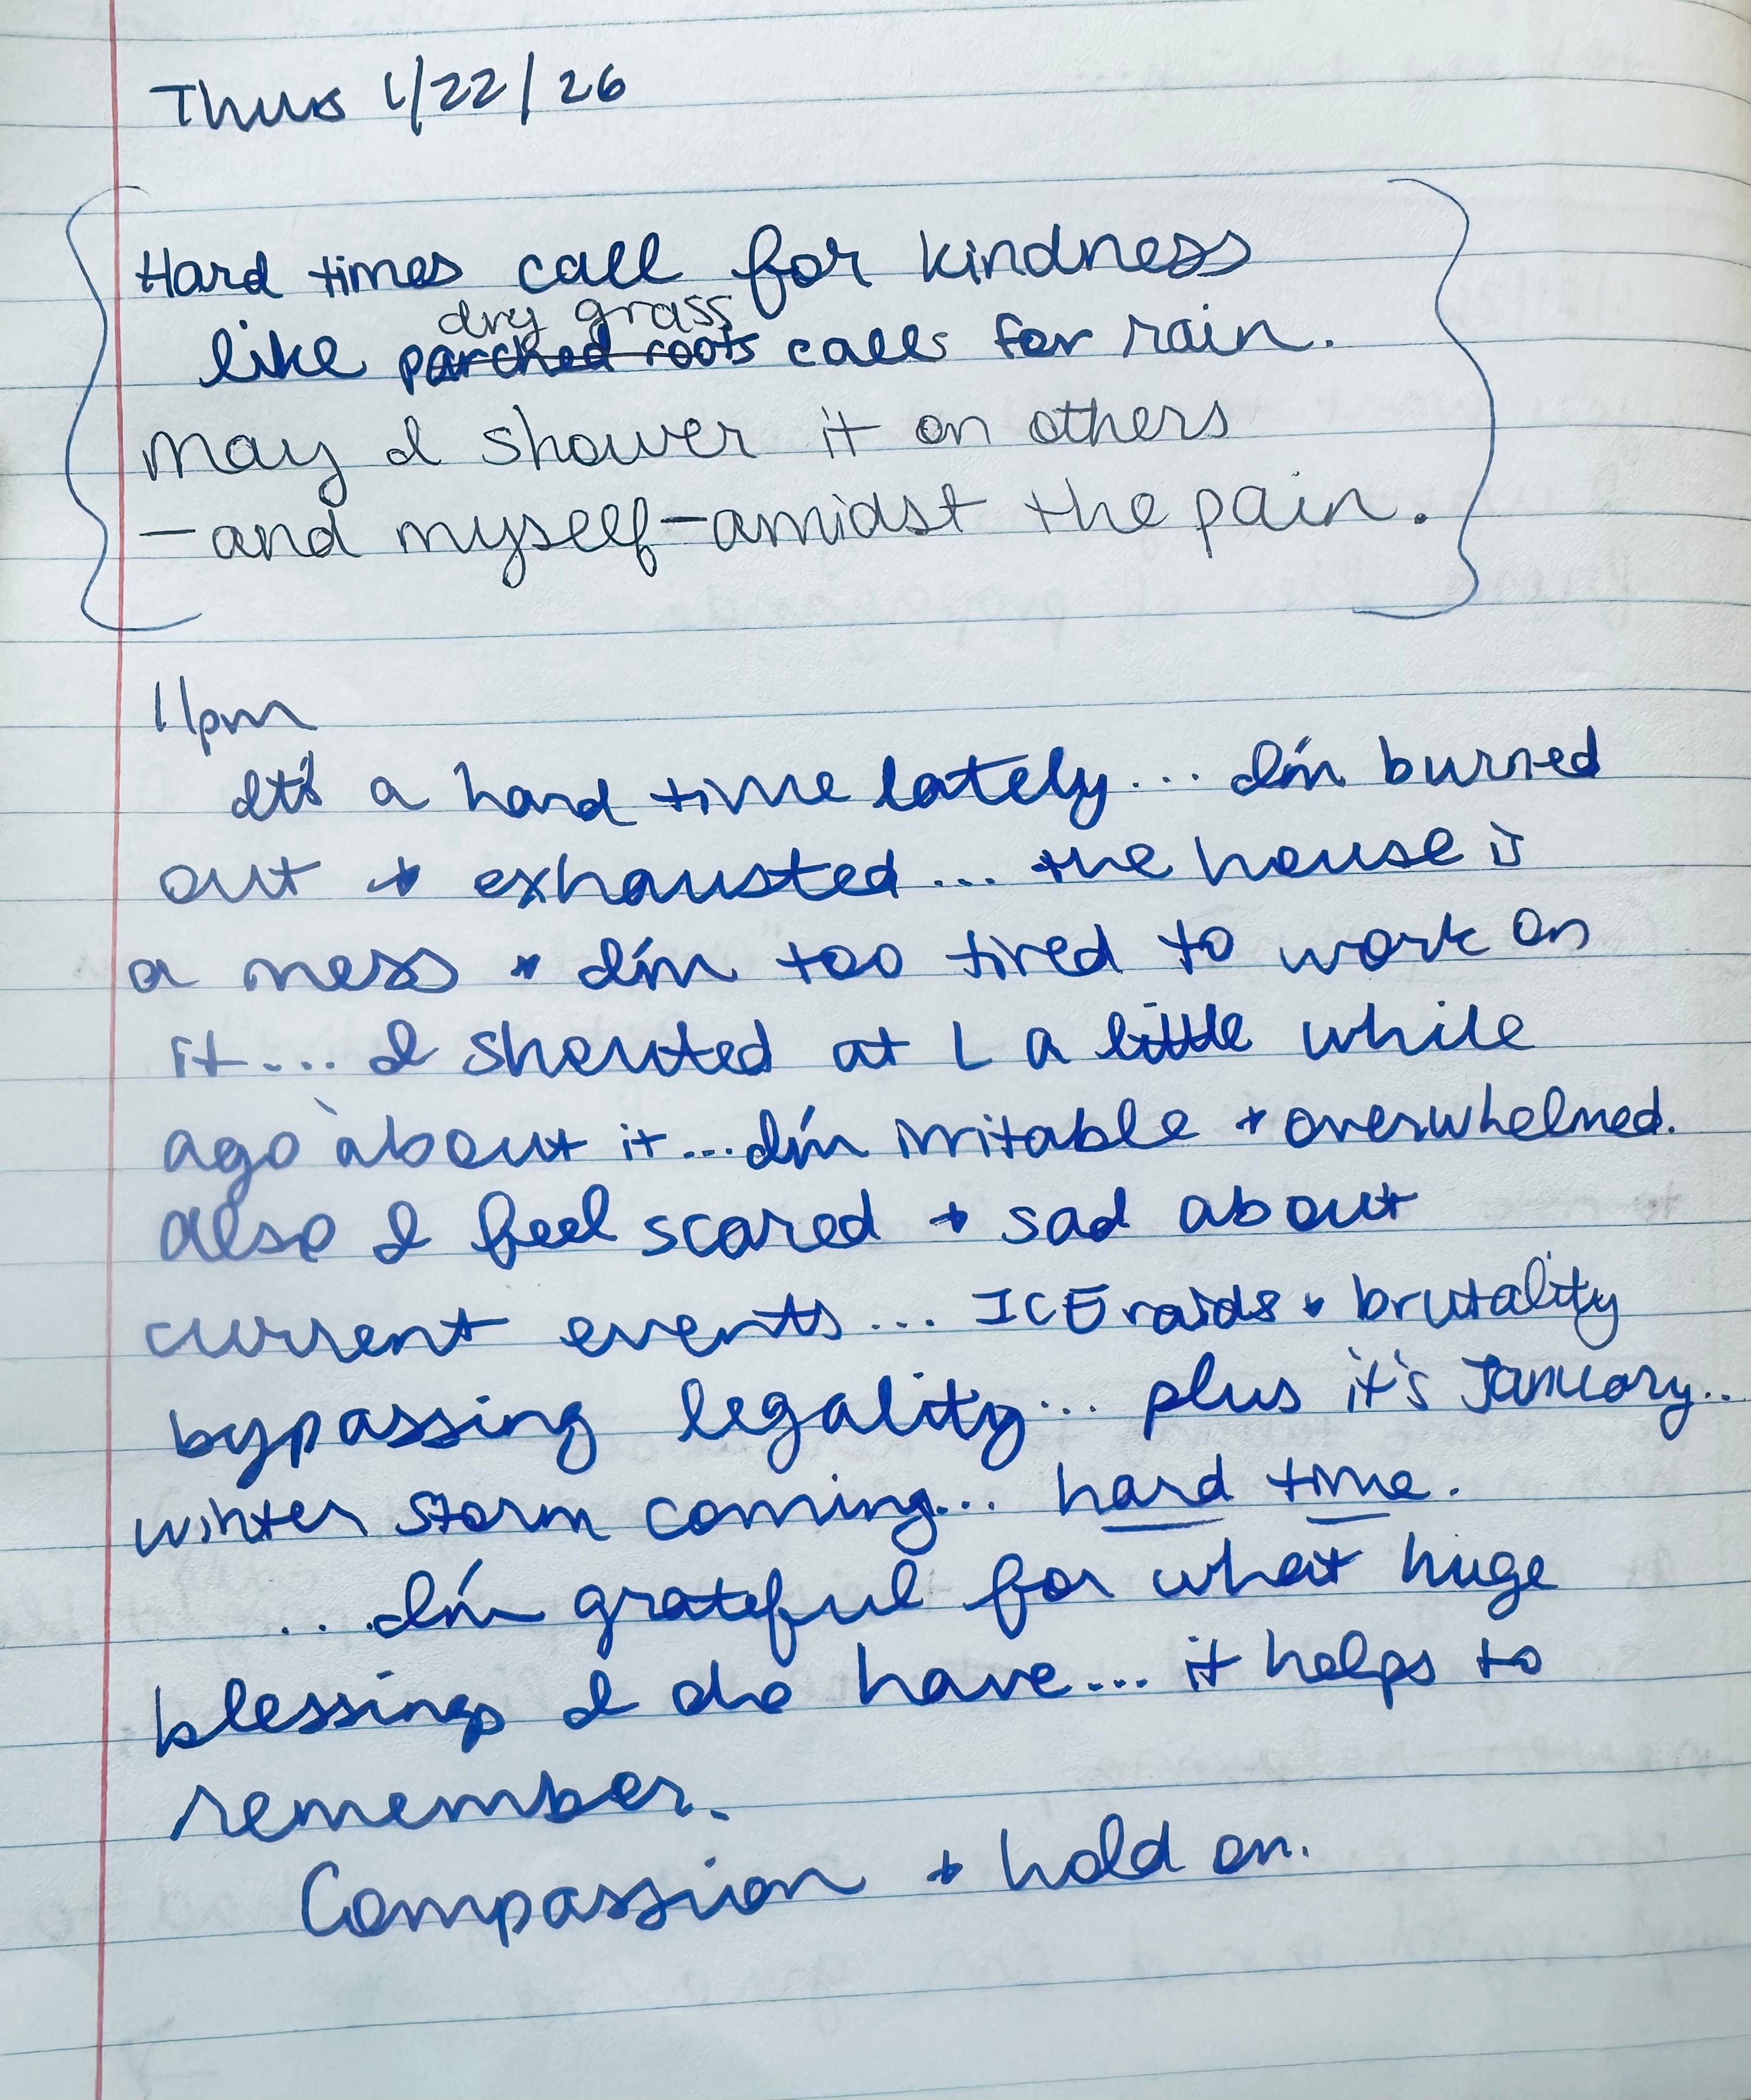 Thurs 1/22/26
Hard times call for kindness
dry grass
like parched roots calls for rain.
May I shower it on others
—and myself—amidst the pain.
11pm
It's a hard time lately... I'm burned
out + exhausted... the house is
a mess + I'm too tired to work on
it.... I shouted at L a little while
ago about it... I'm irritable + overwhelmed.
Also I feel scared + sad about
current events... ICE raids + brutality
bypassing legality... plus it's January..
winter storm coming... hard time.
... I'm grateful for what huge
blessings I do have... it helps to
remember.
Compassion + hold on.